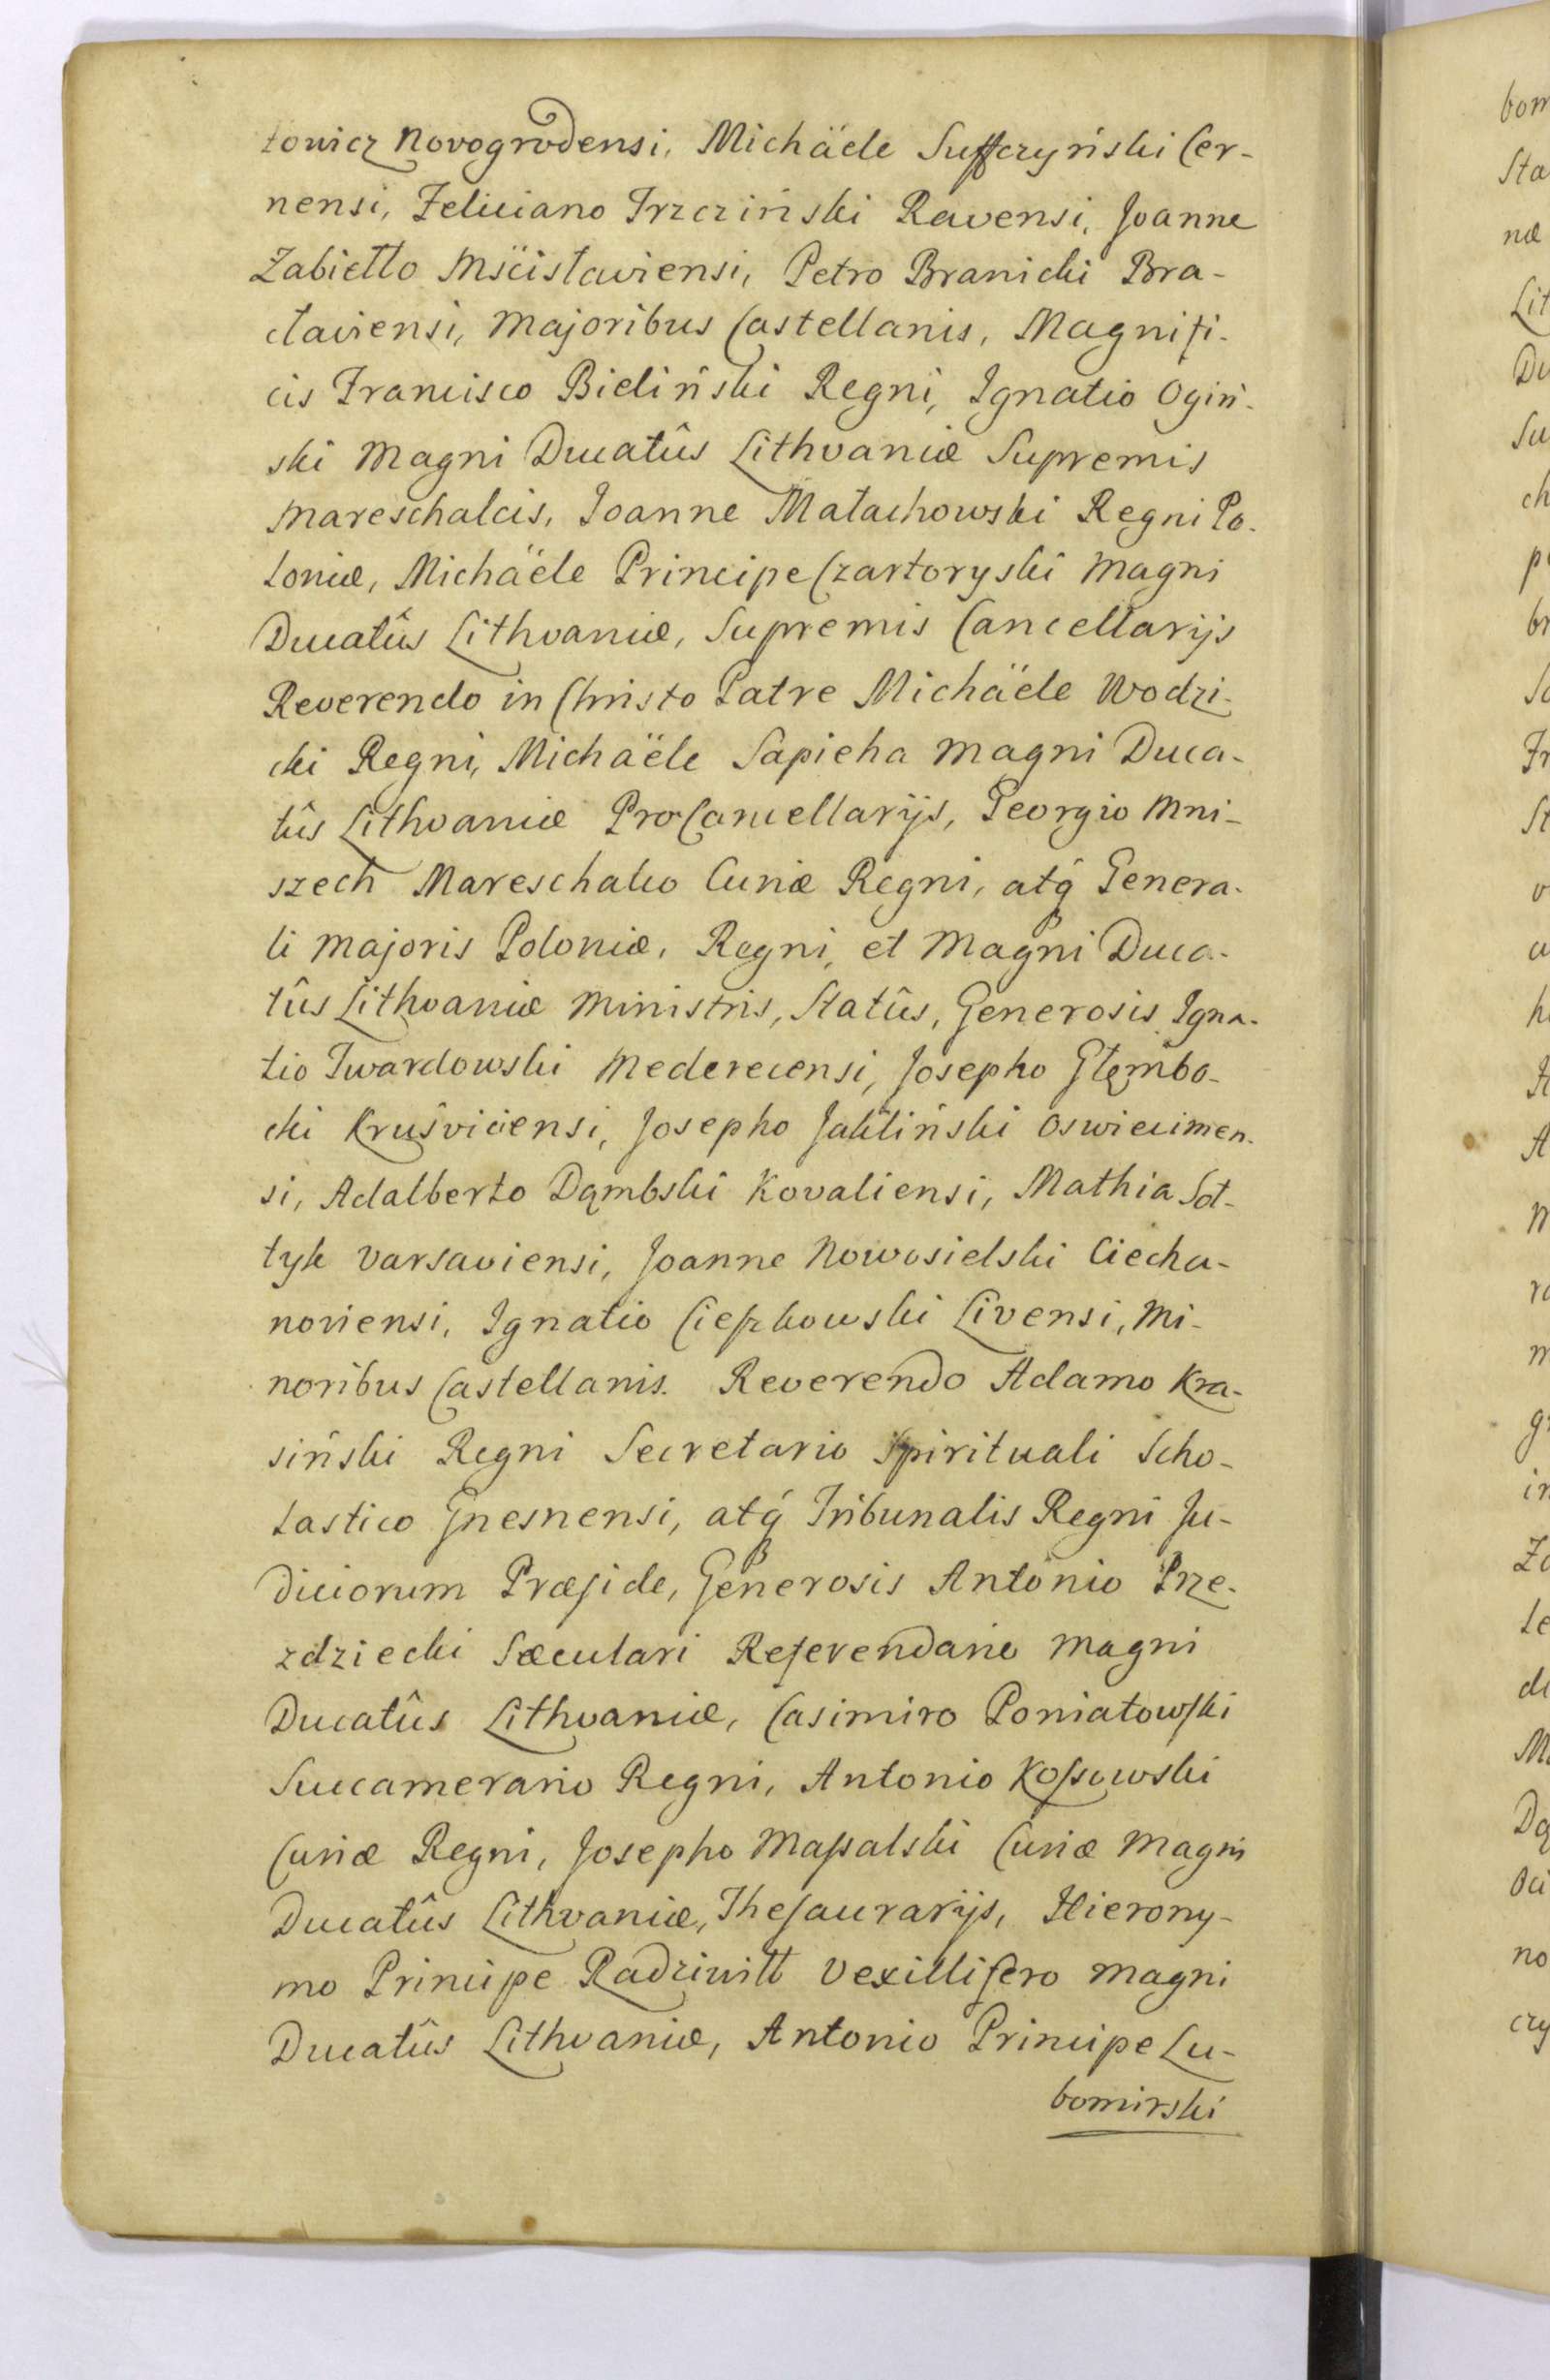 łowicz Novogrodensi, Michäele Suffczyński Cer-
nensi, Feliciano Trzcziński Ravensi, Joanne
Zabiełło Mścislaviensi, Petro Branicki Bra-
claviensi, Majoribus Castellanis, Magnifi-
cis Francisco Bieliński Regni, Ignatio Ogiń-
ski Magni Ducatûs Lithvaniæ Supremis
Mareschalcis, Joanne Małachowski Regni Po-
loniæ, Michäele Principe Czartoryski Magni
Ducatûs Lithvaniæ, Supremis Cancellarijs
Reverendo in Christo Patre Michäele Wodzi-
cki Regni, Michäele Sapieha Magni Duca-
tûs Lithvaniæ ProCancellarijs, Georgio Mni-
szech Mareschalco Curiæ Regni, atq́ Genera-
li Majoris Poloniæ, Regni, et Magni Duca-
tûs Lithvaniæ Ministris, Statûs, Generosis Igna-
tio Twardowski Mederecensi, Josepho Głęmbo-
cki Kruśviciensi, Josepho Jakliński Oswiecimen-
si, Adalberto Dąmbski Kovaliensi, Mathia Soł-
tyk Varsaviensi, Joanne Nowosielski Ciecha-
noviensi, Ignatio Cieſzkowski Livensi, Mi-
noribus Castellanis. Reverendo Adamo Kra-
siński Regni Secretario Spirituali Scho-
lastico Gnesnensi, atq́ Tribunalis Regni Ju-
diciorum Præſide, Generosis Antonio Prze-
zdziecki Sæculari Referendario Magni
Ducatûs Lithvaniæ, Casimiro Poniatowſki
Succamerario Regni, Antonio Koſsowski
Curiæ Regni, Josepho Maſsalski Curiæ Magni
Ducatûs Lithvaniæ, Theſaurarijs, Hierony-
mo Principe Radziwiłł Vexillifero Magni
Ducatûs Lithvaniæ, Antonio Principe Lu-
bomirski